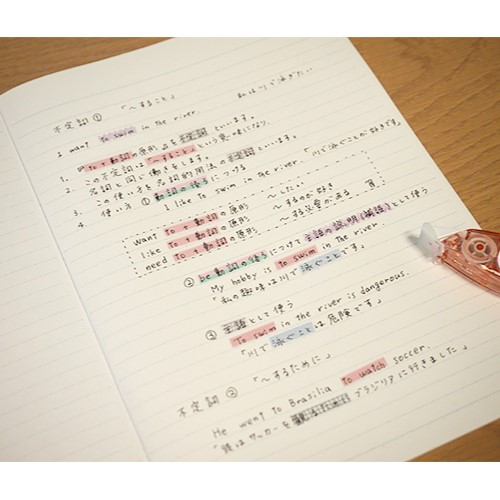 不定詞① 「〜すること」 私は川で泳ぎたい
I want to swim in the river.
1. "to + 動詞の原形"を不定詞といいます。
2. この不定詞は「〜すること」という意味になり、
名詞と同じ働きをします。
3. この使い方を名詞的用法の不定詞といいます。
4. 使い方 ①動詞の後ろにつける
I like to swim in the river. 「川で泳ぐことが好きです」
want to + 動詞の原形 〜したい
like to + 動詞の原形 〜するのが好き
need to + 動詞の原形 〜する必要がある
②be動詞の後ろにつけて主語の説明(補語)として使う
My hobby is to swim in the river.
「私の趣味は川で泳ぐことです」
③主語として使う
To swim in the river is dangerous.
「川で泳ぐことは危険です」
不定詞② 「〜するために」
He went to Brasilia to watch soccer.
「彼はサッカーを ブラジリアに行きました」